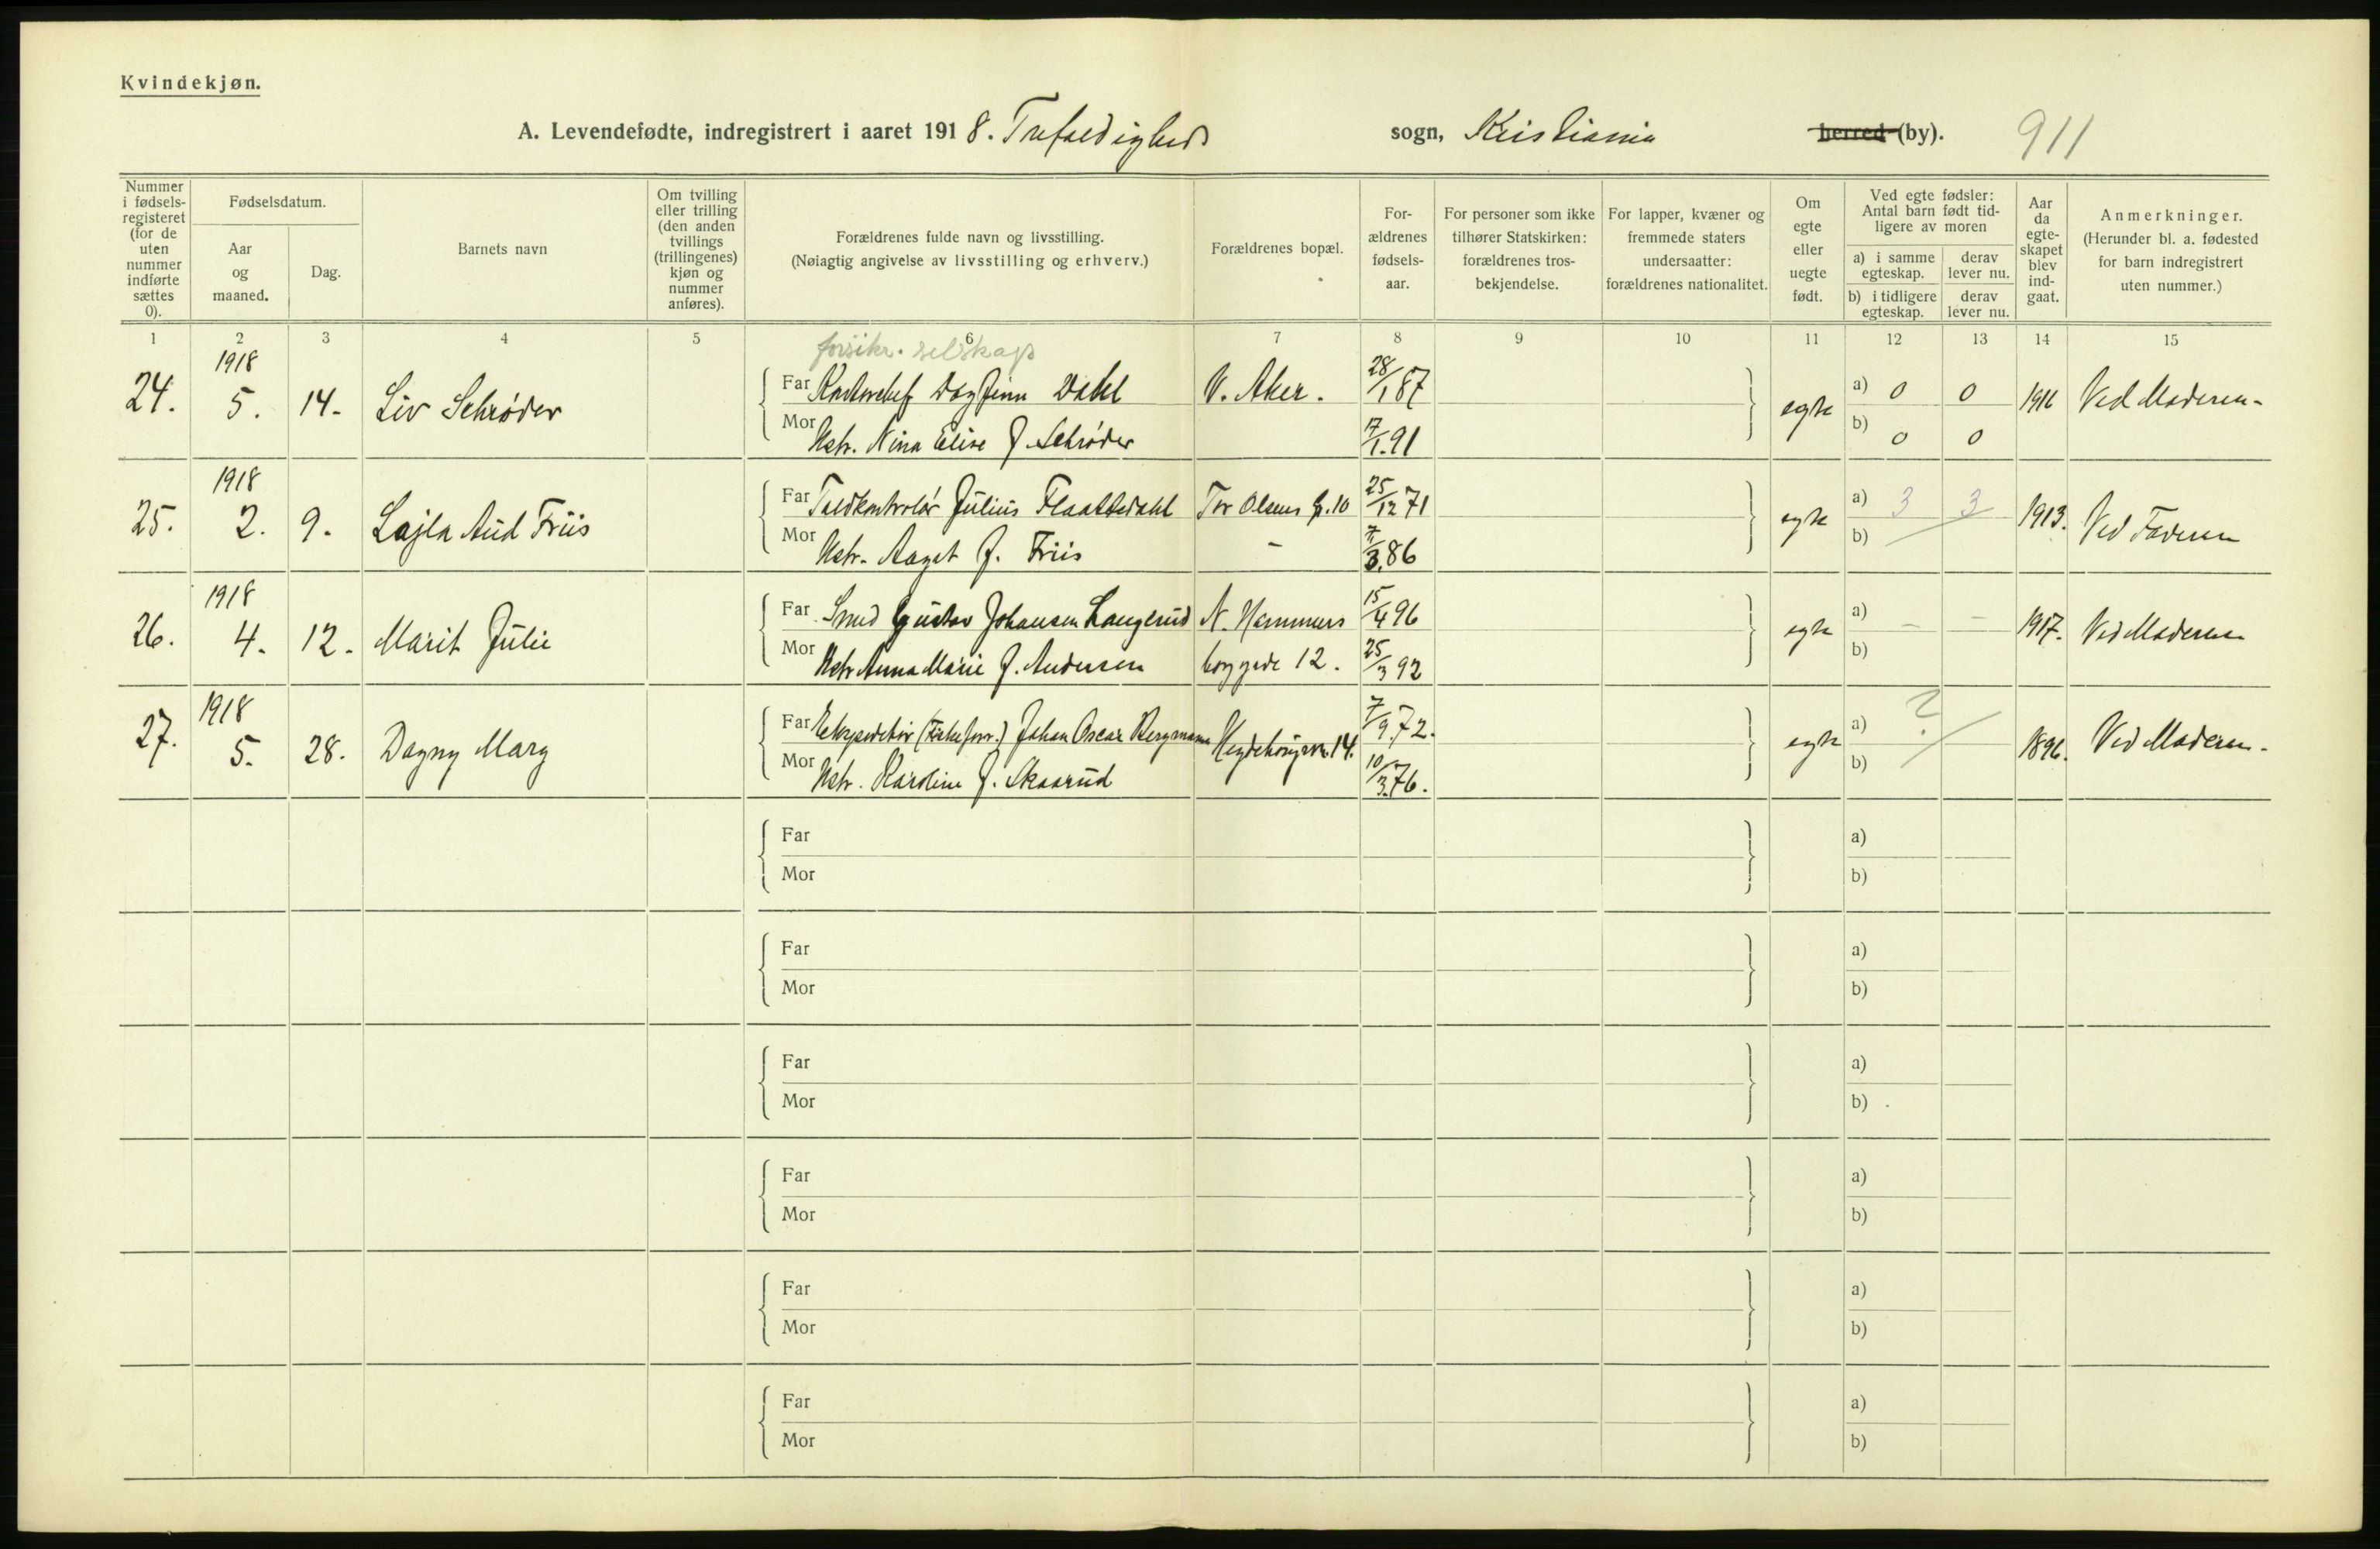 Kvindekjøn.
A. Levendefødte, indregistrert i aaret 1918. Trefoldigheds sogn, Kristiania herred (by). 911
Nummer i fødsels-registeret (for de uten nummer indførte sættes 0).
Fødselsdatum.
Aar og maaned.
Dag.
Barnets navn
Om tvilling eller trilling (den anden tvillings (trillingenes) kjøn og nummer anføres).
Forældrenes fulde navn og livsstilling.
(Nøiagtig angivelse av livsstilling og erhverv.)
Forældrenes bopæl.
For-ældrenes fødsels-aar.
For personer som ikke tilhører Statskirken: forældrenes tros-bekjendelse.
For lapper, kvæner og fremmede staters undersaatter: forældrenes nationalitet.
Om egte eller uegte født.
Ved egte fødsler: Antal barn født tid-ligere av moren
a) i samme egteskap.
derav lever nu.
b) i tidligere egteskap.
derav lever nu.
Aar da egte-skapet blev ind-gaat.
Anmerkninger.
(Herunder bl. a. fødested for barn indregistrert uten nummer.)
1 2 3 4 5 6 7 8 9 10 11 12 13 14 15
forsikr. selskap
24. 1918 5. 14. Liv Schrøder
Far Kontorchef Dagfinn Dahl V. Aker. 28/1 87 egte a) 0 0 1916 Ved Moderen
Mor Hstr. Nina Elise f. Schrøder 7/1.91 b) 0 0
25. 1918 2. 9. Lajla Aud Friis
Far Toldkontrolør Julius Flaattedahl Tor Olsens g. 10 25/12 71 egte a) 3 3 1913. Ved Faderen
Mor Hstr. Aagot f. Friis - 7/3.86 b)
26. 1918 4. 12. Marit Julie
Far Smed Gustav Johansen Langerud N. Hammers 15/4 96 egte a) - - 1917. Ved Moderen
Mor Hstr Anna Marie f. Andersen borggade 12. 25/3 92 b)
27. 1918 5. 28. Dagny Mary
Far Ekspeditør Johan Oscar Bergmann 14. 7/9.72. egte a) ? 1896. Ved Moderen.
Mor Hstr. Karoline f. Skaarud 10/3.76. b)
Far a)
Mor b)
Far a)
Mor b)
Far a)
Mor b)
Far a)
Mor b)
Far a)
Mor b)
Far a)
Mor b)